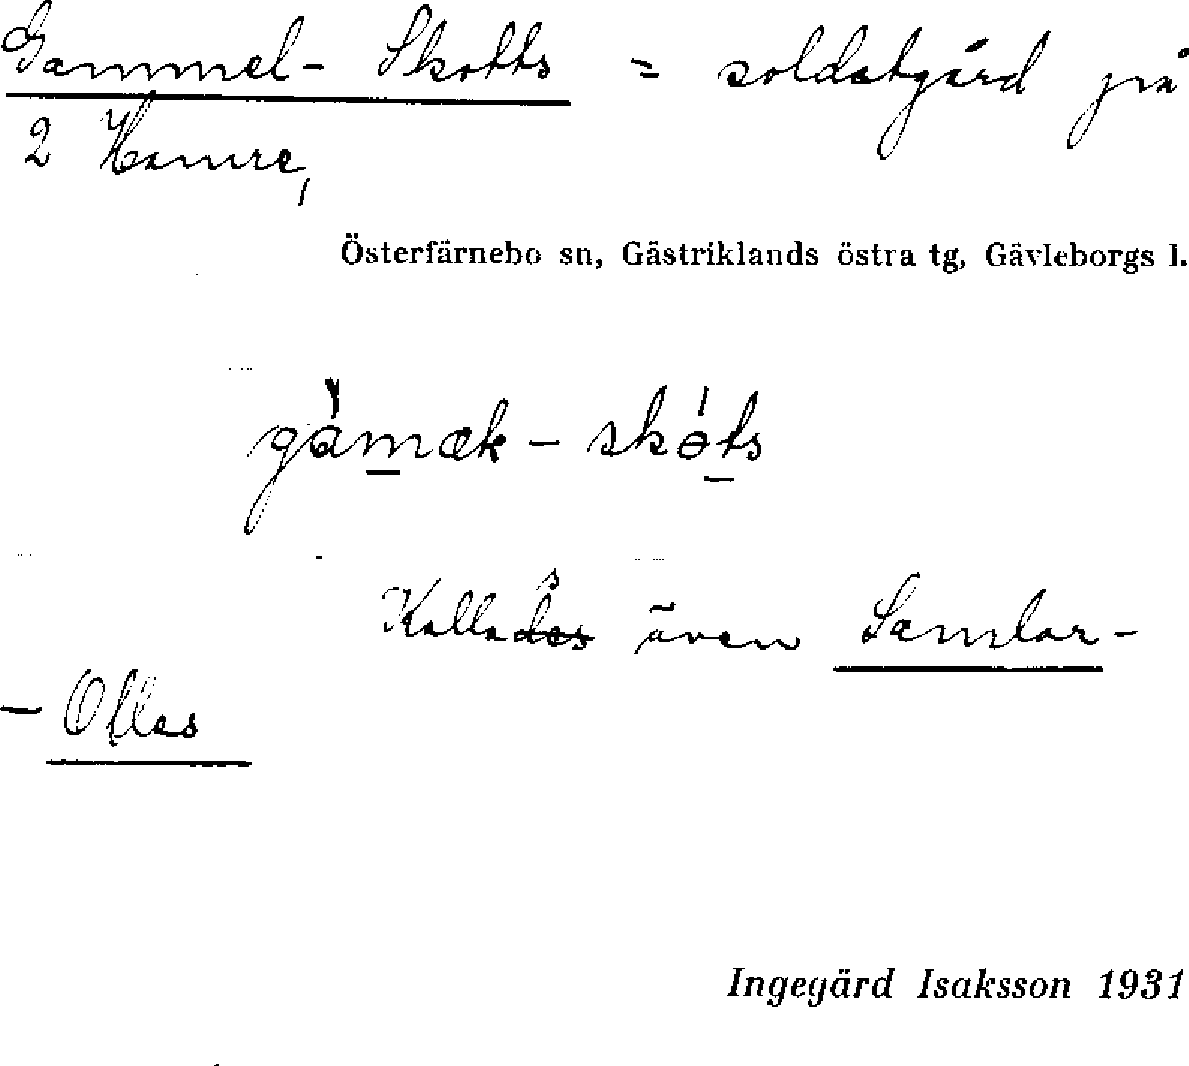 Gammel-Skotts = soldatgård på
2 Hamre,
Österfärnebo sn, Gästriklands östra tg, Gävleborgs l.
gàmæk-skóts
Kallas även Samlar-
-Olles
Ingegärd Isaksson 1931